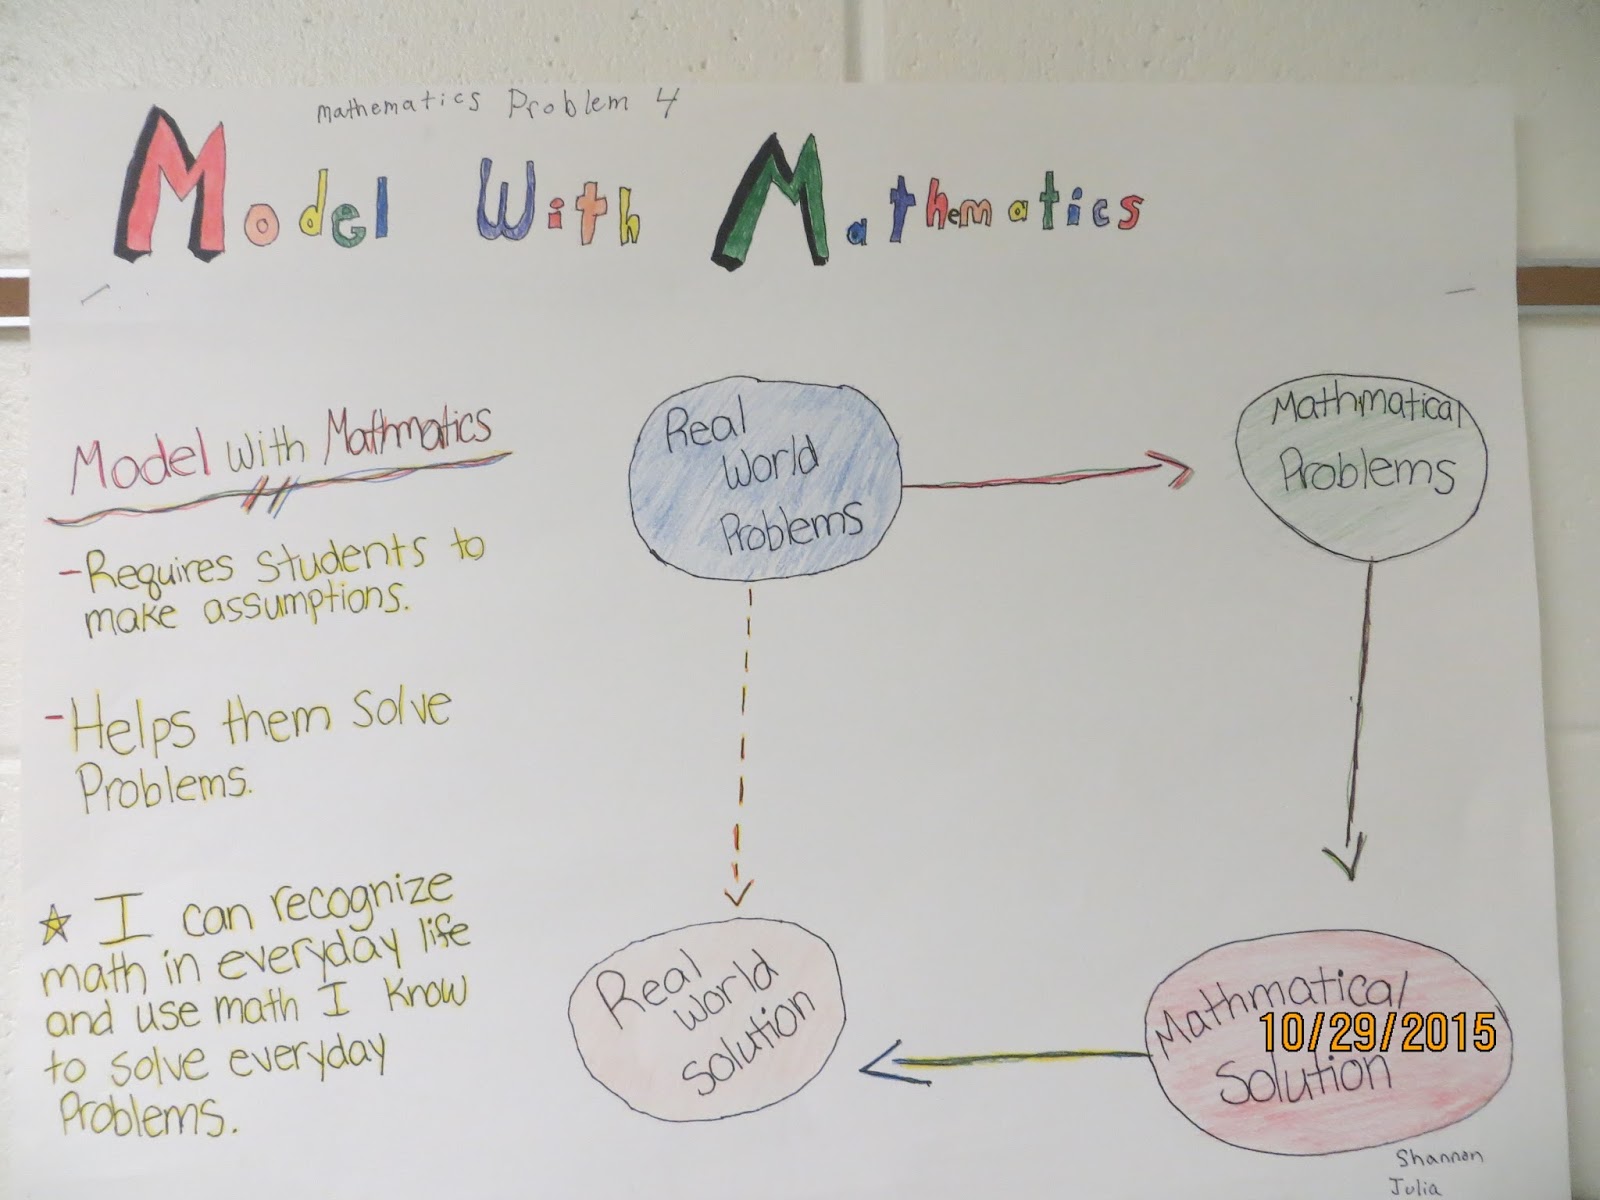 mathematics Problem 4
Model With Mathematics
Model with Mathmatics
-Requires students to
make assumptions.
-Helps them solve
Problems.
☆ I can recognize
math in everyday life
and use math I know
to solve everyday
Problems.
Real
World
Problems
Mathmatical
Problems
Real
World
Solution
Mathmatical
Solution
10/29/2015
Shannon
Julia